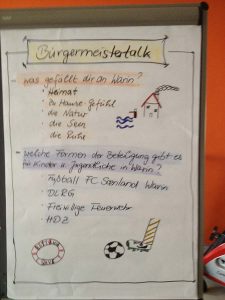 Bürgermeistertalk
Was gefällt dir an Warin?
• Heimat
• zu Hause-Gefühl
• die Natur
• die Seen
• die Ruhe
Welche Formen der Beteiligung gibt es
für Kinder u. Jugendliche in Warin?
• Fußball FC Seenland Warin
• DLRG
• Freiwillige Feuerwehr